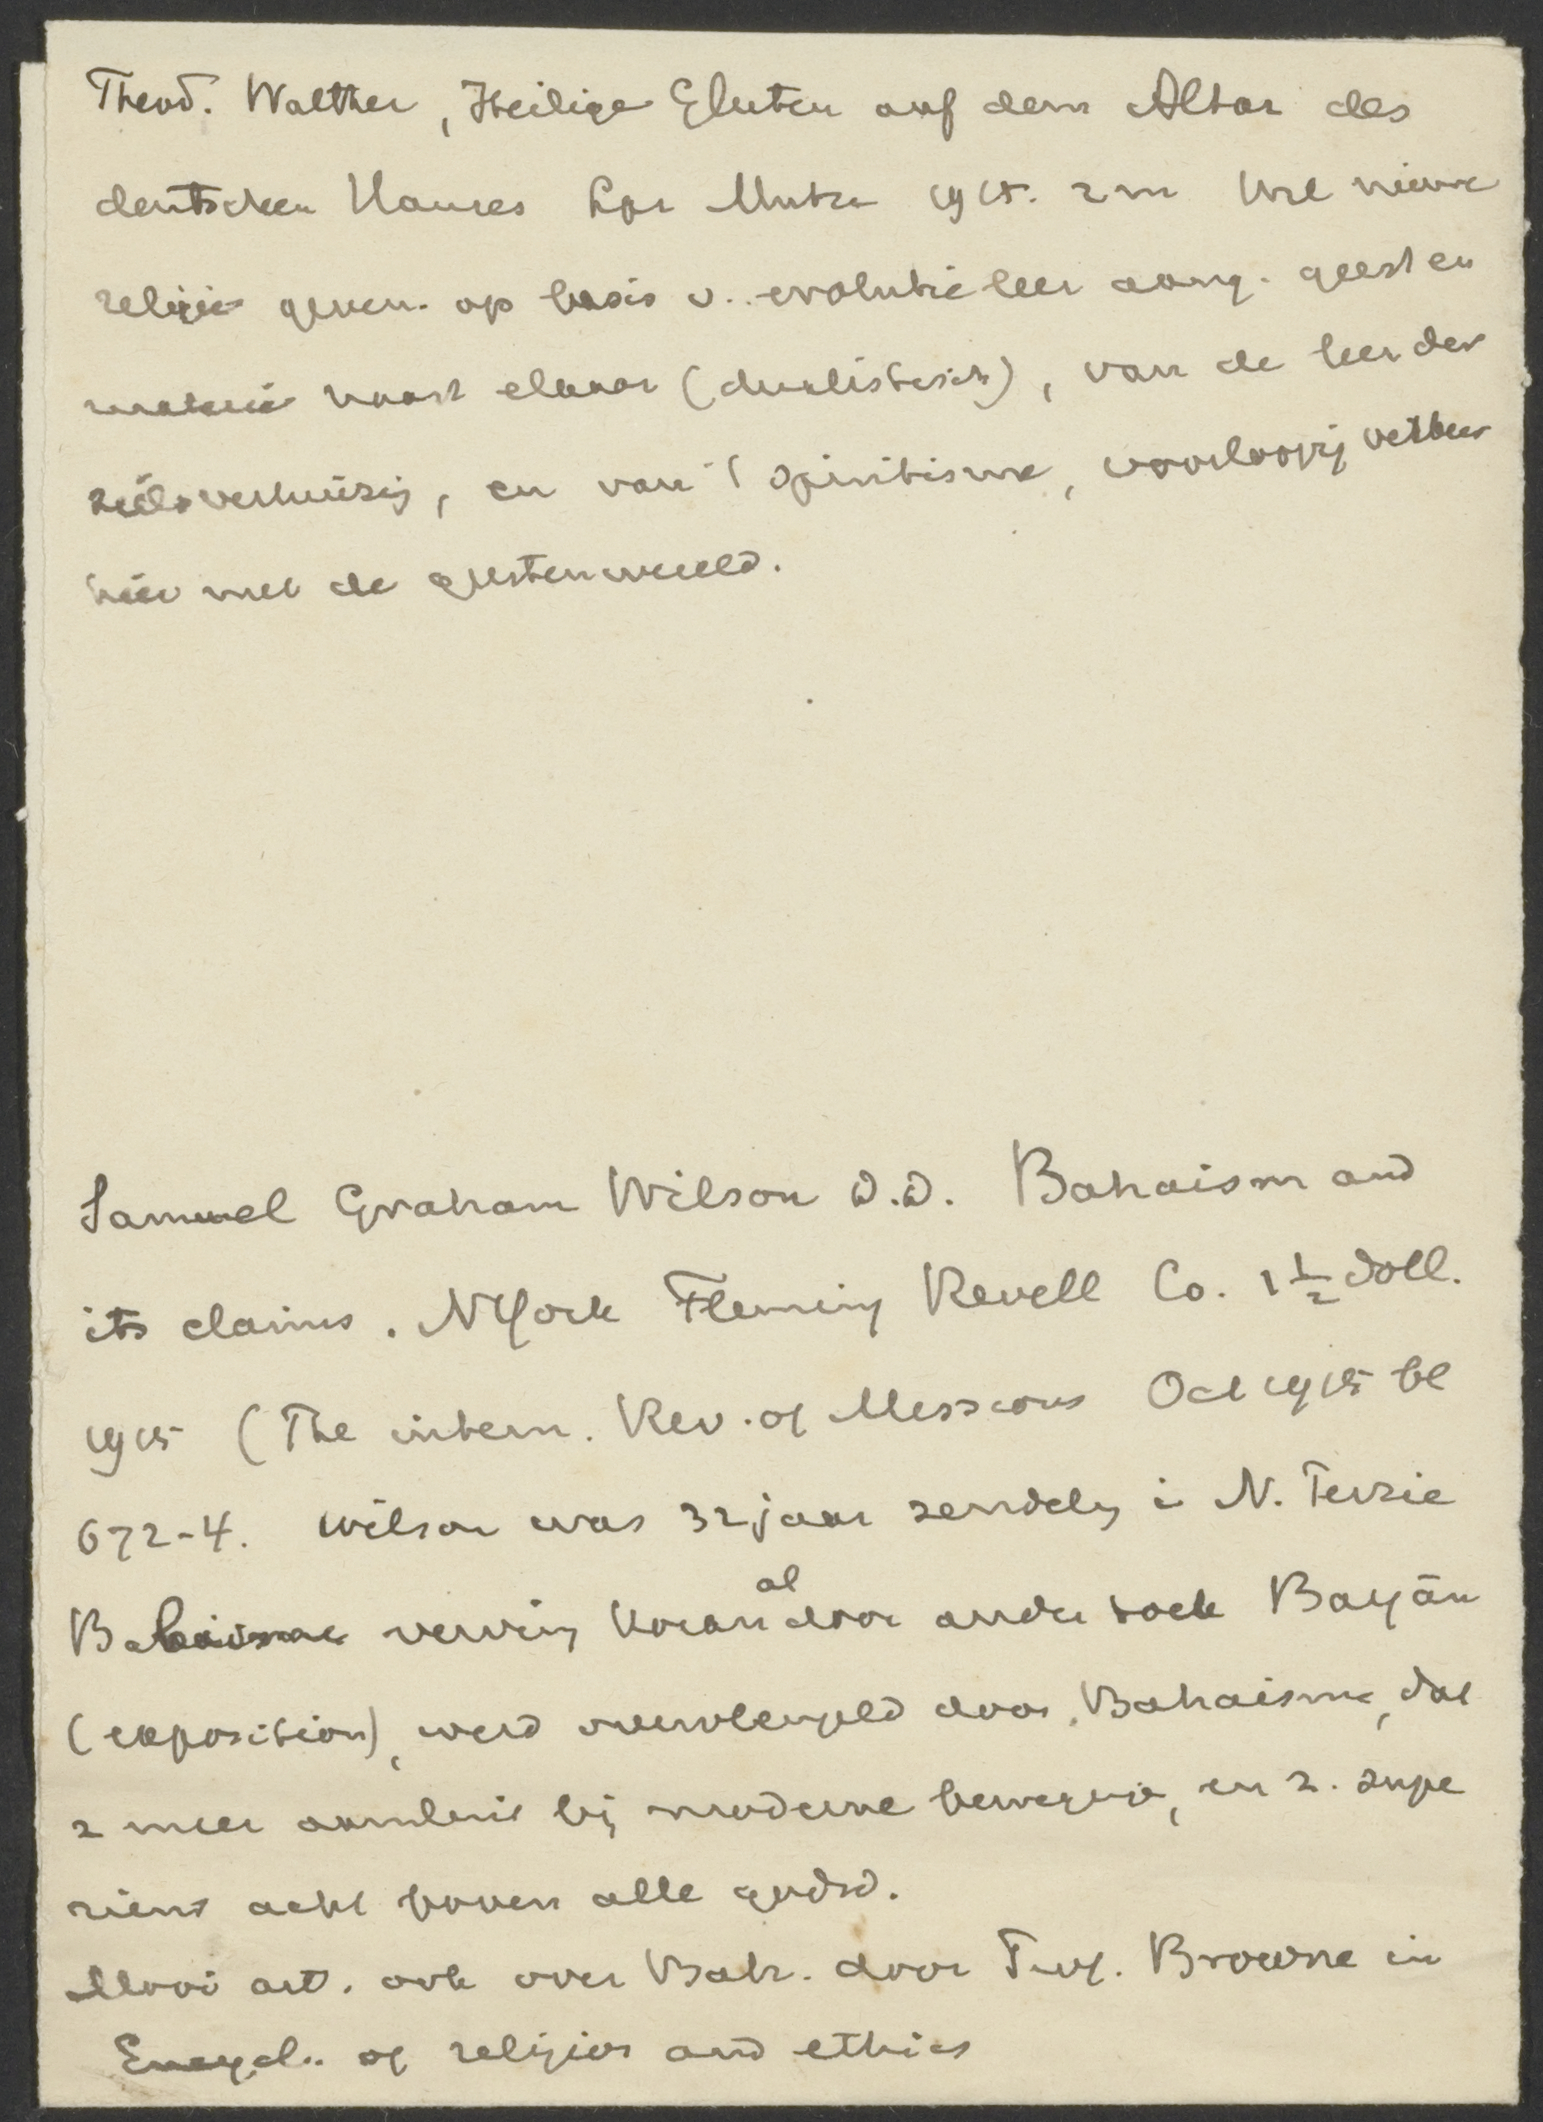 Theod. Walther, Heilige Gluten auf dem Altar des
deutschen Hauses Lpz Mutze 1915. 2 m Wil nieuwe
religie geven op basis v. evolutieleer aang. geest en
materie naast elkaar (dualistisch), van de leer der
zielsverhuizig, en van 't spiritisme, voorloopig verkeer
hier met de geestenwereld.
Samuel Graham Wilson D.D. Bahaism and
its claims. NYork Fleming Revell Co. 1 1/2 doll.
1915 (The intern. Rev. of Missions Oct 1915 bl
672-4. Wilson was 32 jaar zendelg i N. Perzie
Babisme vervng Koran al door ander boek Bayān
(exposition), werd overvleugeld door Bahaisme, dat
z meer aansluit bij moderne bewegnge, en z. supe
rieur acht boven alle godsd.
Mooi art. ook over Bah. door Prof. Browne in
Encycl. of religion and ethics